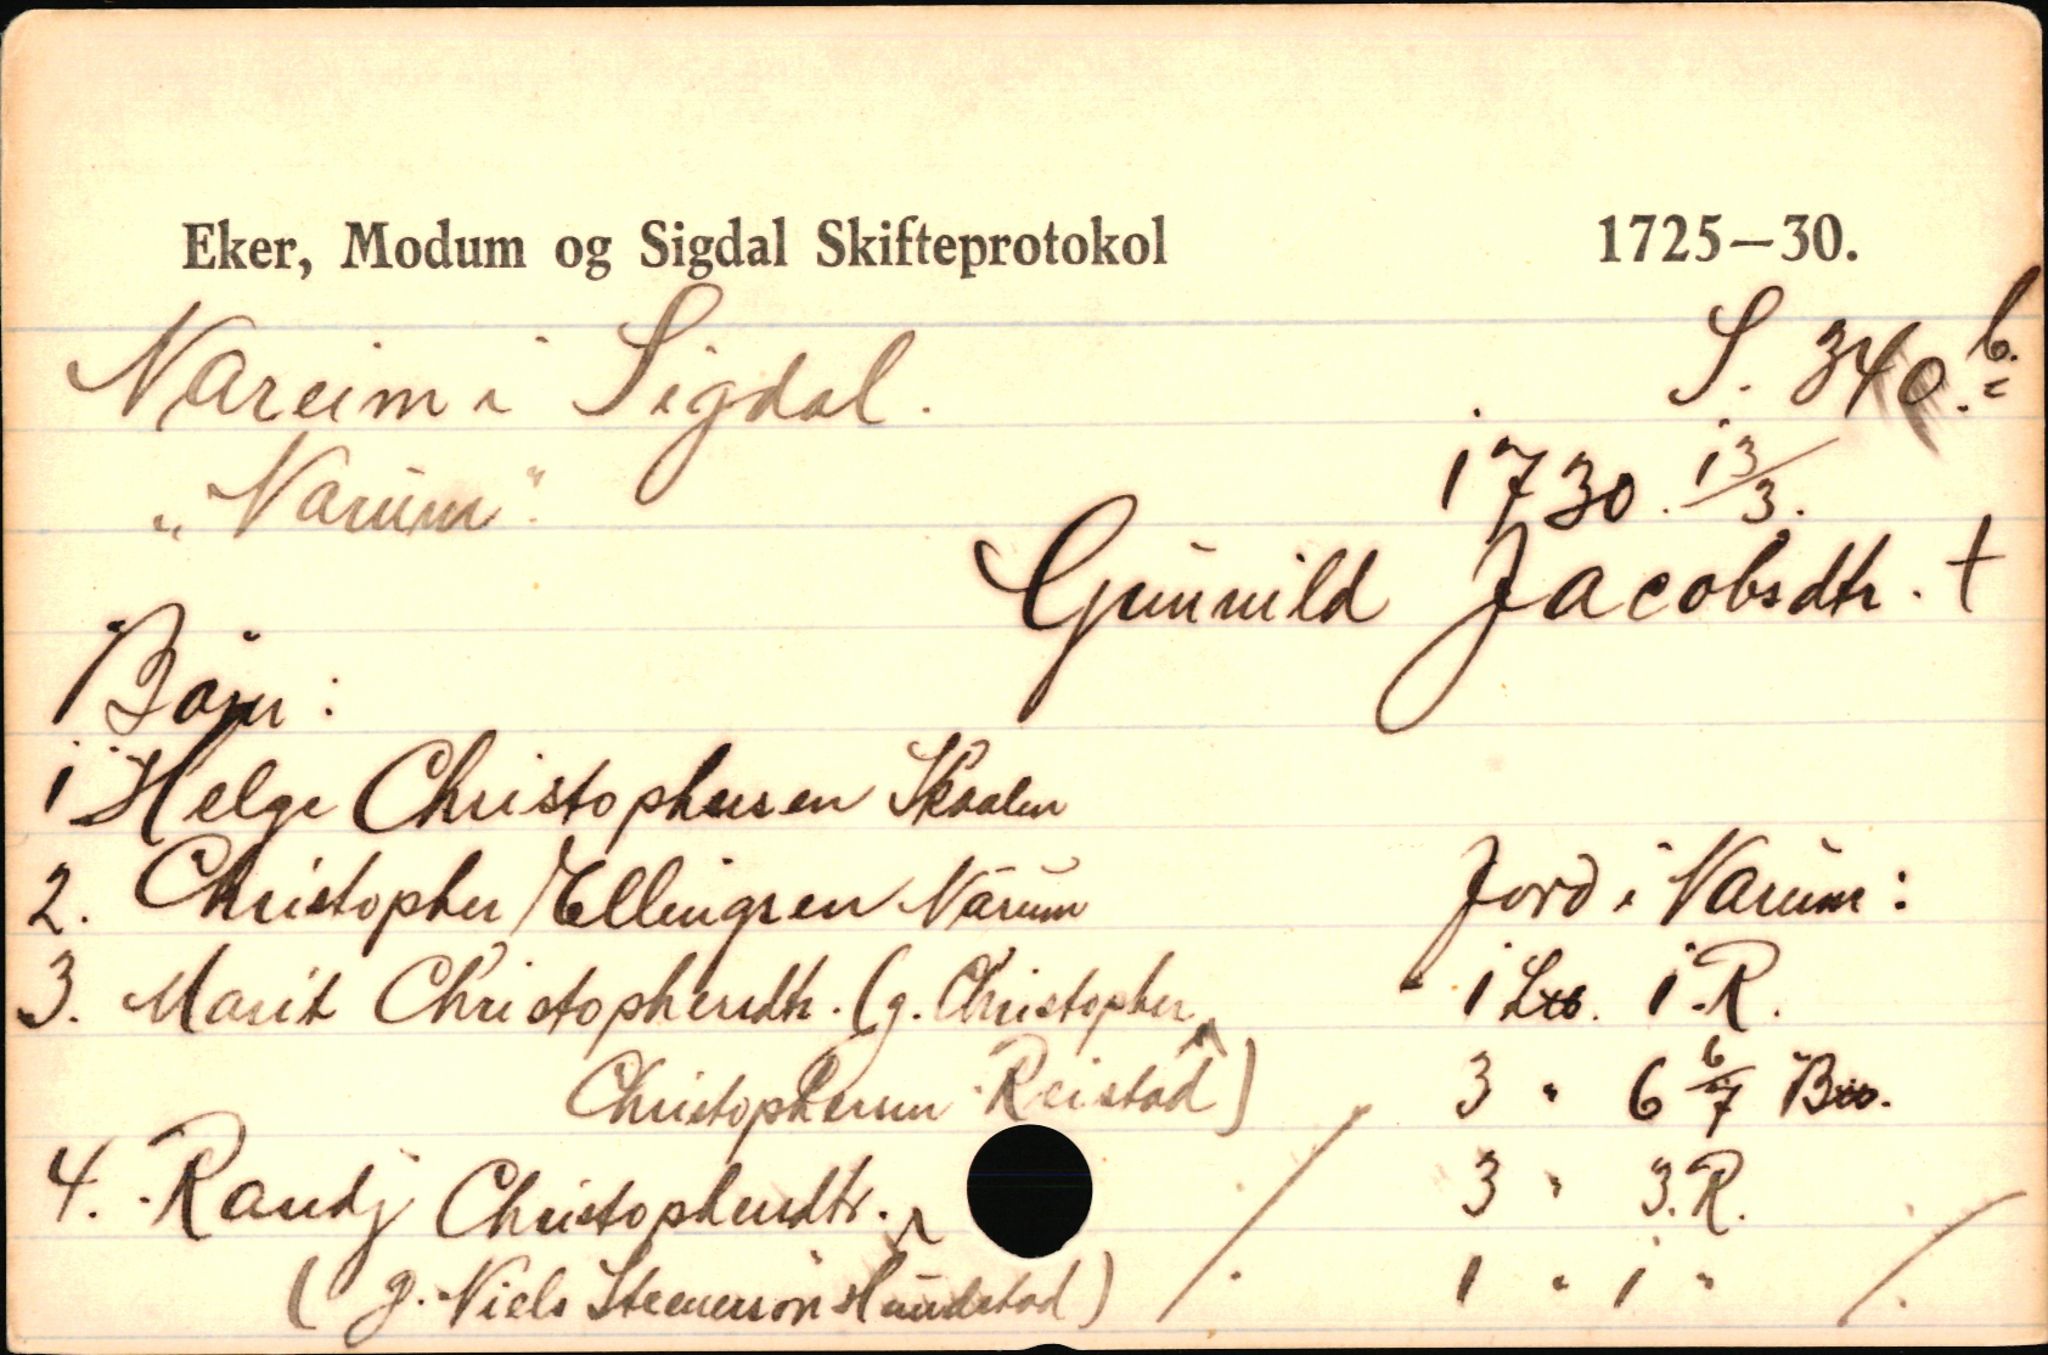 Eker, Modum og Sigdal Skifteprotokol 1725–30.
Nareim i Sigdal. S. 340.b.
„Narum". 1730. 13/3.
Gunnild Jacobsdtr. †
Børn:
1 Helge Christophersen Skaalen
2. Christopher Ellingsen Narum Jord i Narum:
3. Marit Christophersdtr. (g. Christopher 1 Lts. 1 R.
Christophersen Reistad) 3 " 6 6/7 Bts.
4. Randj Christophersdtr. 3 " 3. R.
(g. Niels Steenersøn Hundstad) 1 " 1 "